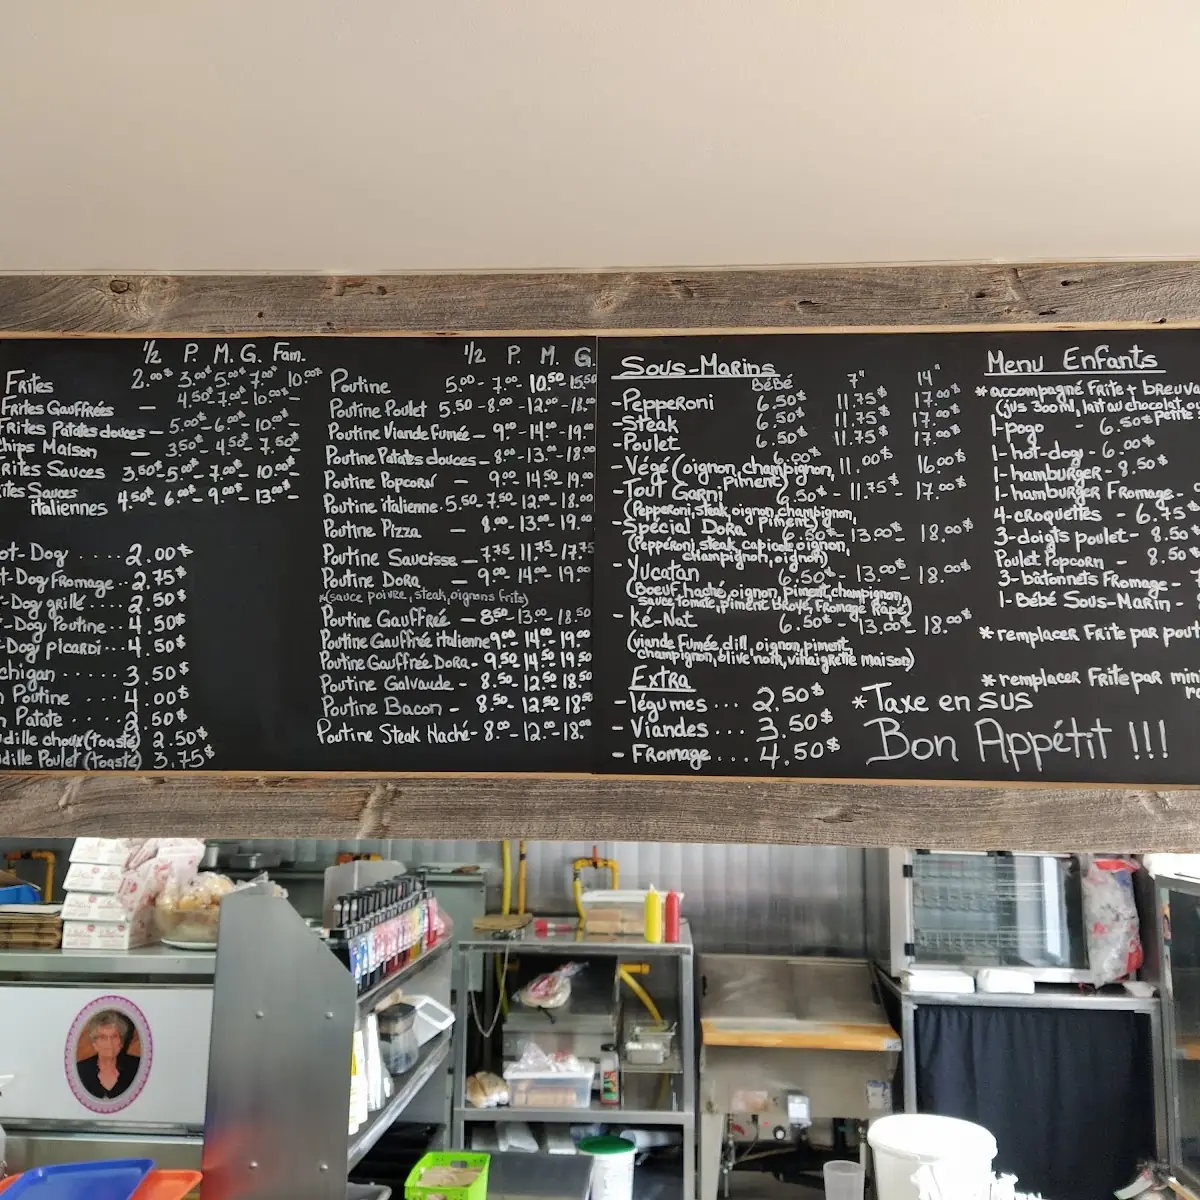 1/2 P. M. G. Fam.
Frites 2.00$ 3.00$ 5.00$ 7.00$ 10.00$
Frites Gauffrées — 4.50$- 7.00$- 10.00$-
Frites Patates douces — 5.00$- 6.00$- 10.00$-
hips Maison — 3.50$- 4.50$- 7.50$
rites Sauces 3.50$-5.00$- 7.00$- 10.00$
ites Sauces
italiennes 4.50$- 6.00$- 9.00$- 13.00$-
ot-Dog .... 2.00$
t-Dog Fromage.. 2.75$
-Dog grillé .... 2.50$
-Dog Poutine... 4.50$
-Dog picardi... 4.50$
chigan ...... 3.50$
Poutine ..... 4.00$
Patate .... 2.50$
dille choux (toasté) 2.50$
dille Poulet (toasté) 3.75$
1/2 P. M. G.
Poutine 5.00- 7.00- 10.50 15.50
Poutine Poulet 5.50-8.00-12.00-18.00
Poutine Viande fumée — 9.00-14.00-19.00
Poutine Patates douces — 8.00-13.00-18.00
Poutine Popcorn — 9.00 14.50 19.00
Poutine italienne. 5.50-7.50 12.00-18.00
Poutine Pizza — 8.00-13.00-19.00
Poutine Saucisse — 7.75 11.75 17.75
Poutine Dora — 9.00 14.00 19.00
*(sauce poivre, steak, oignons frits)
Poutine Gauffrée — 8.50-13.00-18.50
Poutine Gauffrée italienne 9.00-14.00-19.00
Poutine Gauffrée Dora- 9.50 14.50 19.50
Poutine Galvaude- 8.50-12.50 18.50
Poutine Bacon — 8.50-12.50 18.50
Poutine Steak Haché- 8.00-12.00-18.00
Sous-Marins
Bébé 7" 14"
- Pepperoni 6.50$ 11.75$ 17.00$
- Steak 6.50$ 11.75$ 17.00$
- Poulet 6.50$ 11.75$ 17.00$
- Végé (oignon, champignon, piment) 6.00$ 11.00$ 16.00$
- Tout Garni 6.50$- 11.75$- 17.00$
(Pepperoni, steak, oignon, champignon, piment)
- Spécial Dora 6.50$-13.00$- 18.00$
(Pepperoni, steak, capicole, oignon,
champignon, oignon)
- Yucatan 6.50$- 13.00$- 18.00$
(Boeuf haché, oignon, piment, champignon,
sauce tomate, piment broyé, fromage rapé)
- Ké-Nat 6.50$- 13.00$- 18.00$
(viande fumée, dill, oignon, piment,
champignon, olive noir, vinaigrette maison)
Extra
- légumes... 2.50$
- Viandes... 3.50$
- Fromage... 4.50$
*Taxe en sus
Bon Appétit !!!
Menu Enfants
* accompagné Frite + breuva
(jus 300ml, lait au chocolat ou
1-pogo - 6.50$
1-hot-dog- 6.00$
1-hamburger- 8.50$
1-hamburger Fromage-
4-croquettes - 6.75$
3-doigts poulet- 8.50$
Poulet Popcorn — 8.50$
3-bâtonnets Fromage-
1-Bébé Sous-Marin -
* remplacer Frite par pout
* remplacer Frite par mini